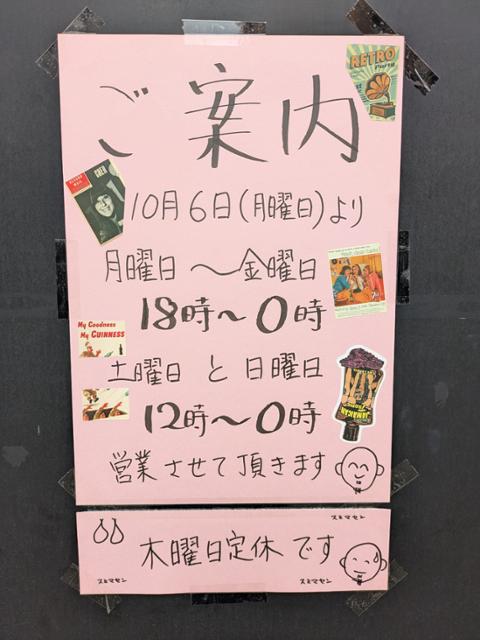 ご案内
RETRO
10月6日(月曜日)より
月曜日～金曜日
18時～0時
My Goodness
My GUINNESS
土曜日と日曜日
12時～0時
営業させて頂きます
スミマセン
木曜日定休です
スミマセン
スミマセン